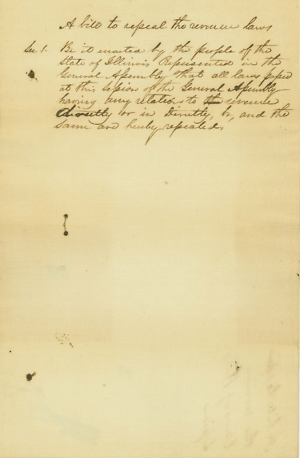 A bill to repeal the revenue laws
Sec 1. Be it enacted by the people of the
State of Illinois Represented in the
General Assembly, That all laws passed
at this Session of the General Assembly
having any relation to the revenue
directly or in directly, be, and the
same are hereby repealed,